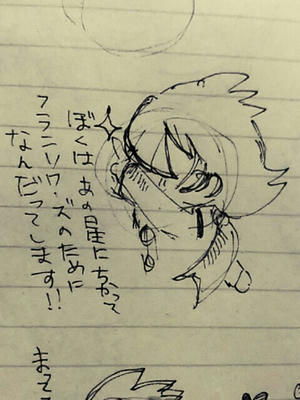 ぼくはあの星にちかって
フランソワーズのために
なんだってします!!
まてこ